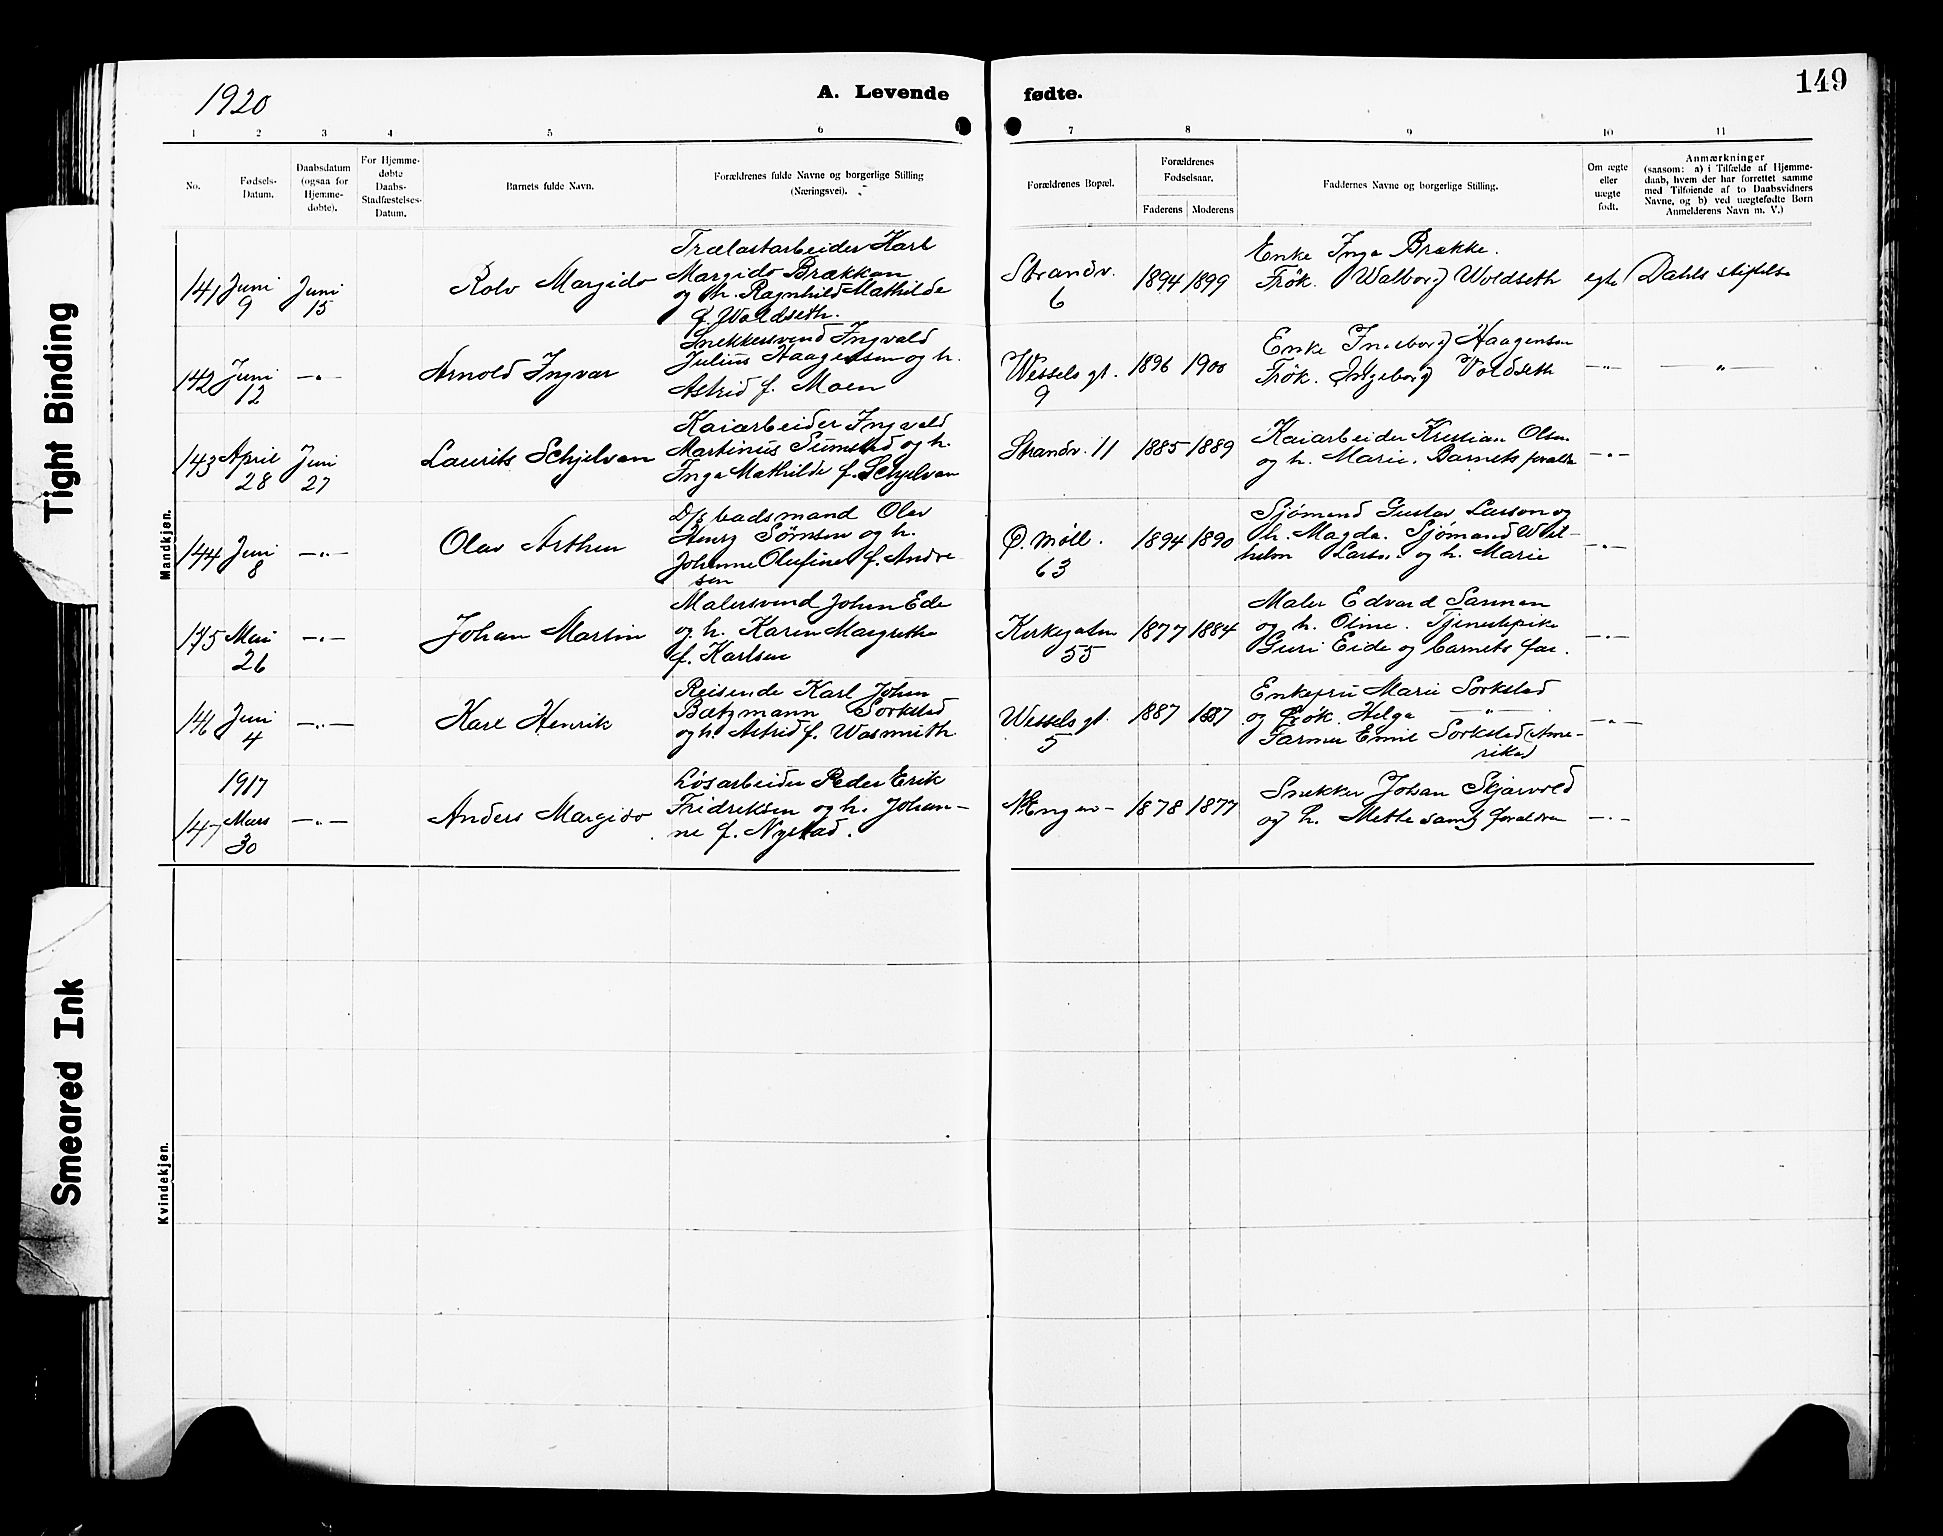 1920
A. Levende fødte.
149
1 2 3 4 5 6 7 8 9 10 11
No.
Fødsels-
Datum.
Daabsdatum
(ogsaa for
Hjemme-
døbte).
For Hjemme-
døbte
Daabs-
Stadfæstelses-
Datum.
Barnets fulde Navn.
Forældrenes fulde Navne og borgerlige Stilling
(Næringsvei).
Forældrenes Bopæl.
Forældrenes
Fødselsaar.
Faderens
Moderens
Faddernes Navne og borgerlige Stilling.
Om ægte
eller
uægte
født.
Anmærkninger
(saasom: a) i Tilfælde af Hjemme-
daab, hvem der har forrettet samme
med Tilføiende af to Daabsvidners
Navne, og b) ved uægtefødte Børn
Anmelderens Navn m. V.)
Mandkjøn.
141
Juni
9
Juni
15
Rolv Margido
Trælastarbeider Karl
Margido Brækkan
og h. Ragnhild Mathilde
f. Woldseth.
Strandv.
6
1894
1899
Enke Inga Brække.
Frøk. Walborg Woldseth
egte
Dahls stiftelse
142
Juni
12
—"—
Arnold Ingvar
Snekkersvend Ingvald
Julius Haagensen og h.
Astrid f. Moen
Wessels gt.
9
1896
1900
Enke Ingeborg Haagensen
Frøk. Ingeborg Voldseth
—"—
—"—
143
April
28
Juni
27
Laurits Schjelvan
Kaiarbeider Ingvald
Martinus Sumstad og h.
Inga Mathilde f. Schjelvan
Strandv. 11
1885
1889
Kaiarbeider Kristian Olsen
og h. Marie. Barnets foraldre
—"—
144
Juni
8
—"—
Olav Arthur
D/s baadsmand Olav
Henry Sørnsen og h.
Johanne Olufine f. Andre-
sen
Ø. Møll.
63
1894
1890
Sjømand Gustav Larson og
h. Magda. Sjømand Wil-
helm Larson og h. Marie
—"—
145
Mai
26
—"—
Johan Martin
Malersvend Johan Ede
og h. Karen Margrethe
f. Karlsen
Kirkegaten
55
1877
1884
Maler Edvard
og h. Oline. Tjenestepike
Guri Eide og barnets far.
—"—
146
Juni
4
—"—
Karl Henrik
Reisende Karl Johan
Bætzmann Sorkstad
og h. Astrid f. Wasmuth
Wessels gt.
5
1887
1887
Enkefru Marie Sorkstad
og frøk. Helga —"—
Farmer Emil Sorkstad (Ame-
rika)
—"—
147
1917
Mars
30
—"—
Anders Margido
Løsarbeider Peder Erik
Fridriksen og h. Johan-
ne f. Nystad.
N. Engen-
1878
1877
Snekker Johan Skjærvold
og h. Mette samt foraldren
—"—
Kvindekjøn.
Tight Binding
Smeared Ink